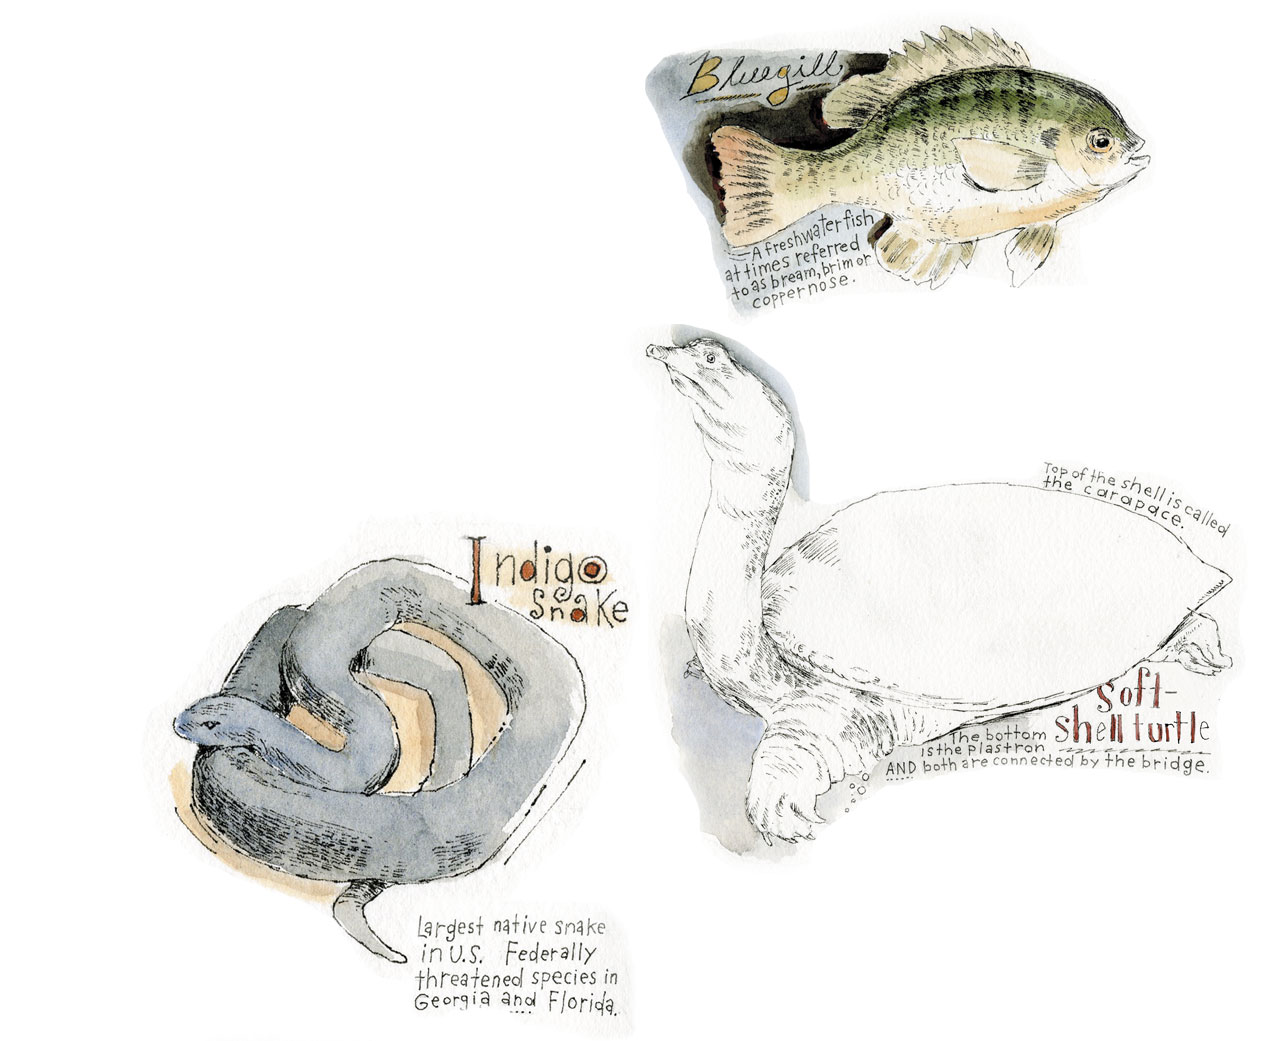 Bluegill
A freshwater fish
at times referred
to as bream, brim or
coppernose.
Top of the shell is called
the carapace.
Soft-
shell turtle
The bottom
is the plastron
AND both are connected by the bridge.
Indigo
snake
Largest native snake
in U.S. Federally
threatened species in
Georgia and Florida.